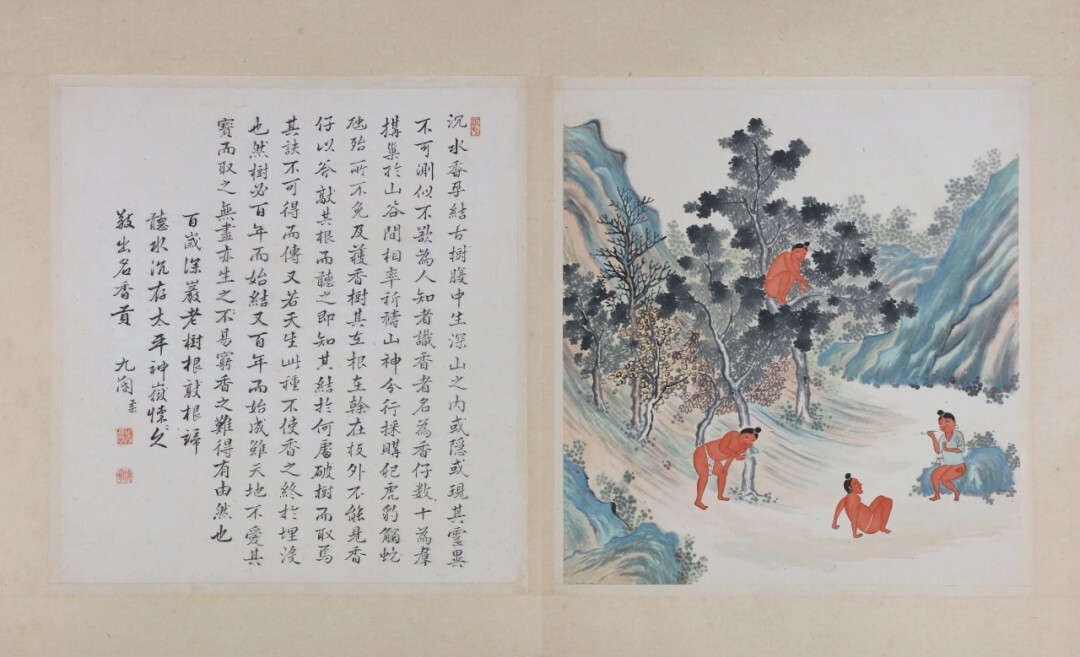 沉水香孕結古樹腹中生深山之內或隱或現其靈異
不可測似不欲為人知者識香者名為香仔數十為羣
搆巢於山谷間相率祈禱山神分行採購犯虎豹觸蛇
虺殆所不免及獲香樹其在根在榦在枝外不能見香
仔以斧敲其根而聽之即知其結於何處破樹而取焉
其訣不可得而傳又若天生此種不使香之終於埋沒
也然樹必百年而始結又百年而始成雖天地不愛其
寶而取之無盡亦生之不易窮香之難得有由然也
百歲深巖老樹根敲根諦
聽水沉存太平神嶽懷久
敬出名香貢
九閽